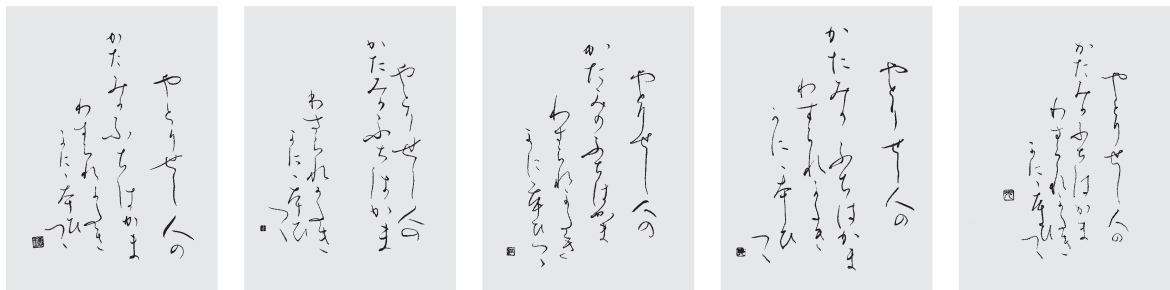 やとりせし人の
かたみかふちはかま
わすられかたき
かにゝほひつゝ
やとりせし人の
かたみかふちはかま
わすられかたき
かにゝほひつゝ
やとりせし人の
かたみかふちはかま
わすられかたき
かにゝほひつゝ
やとりせし人の
かたみかふちはかま
わすられかたき
かにゝほひつゝ
やとりせし人の
かたみかふちはかま
わすられかたき
かにゝほひつゝ